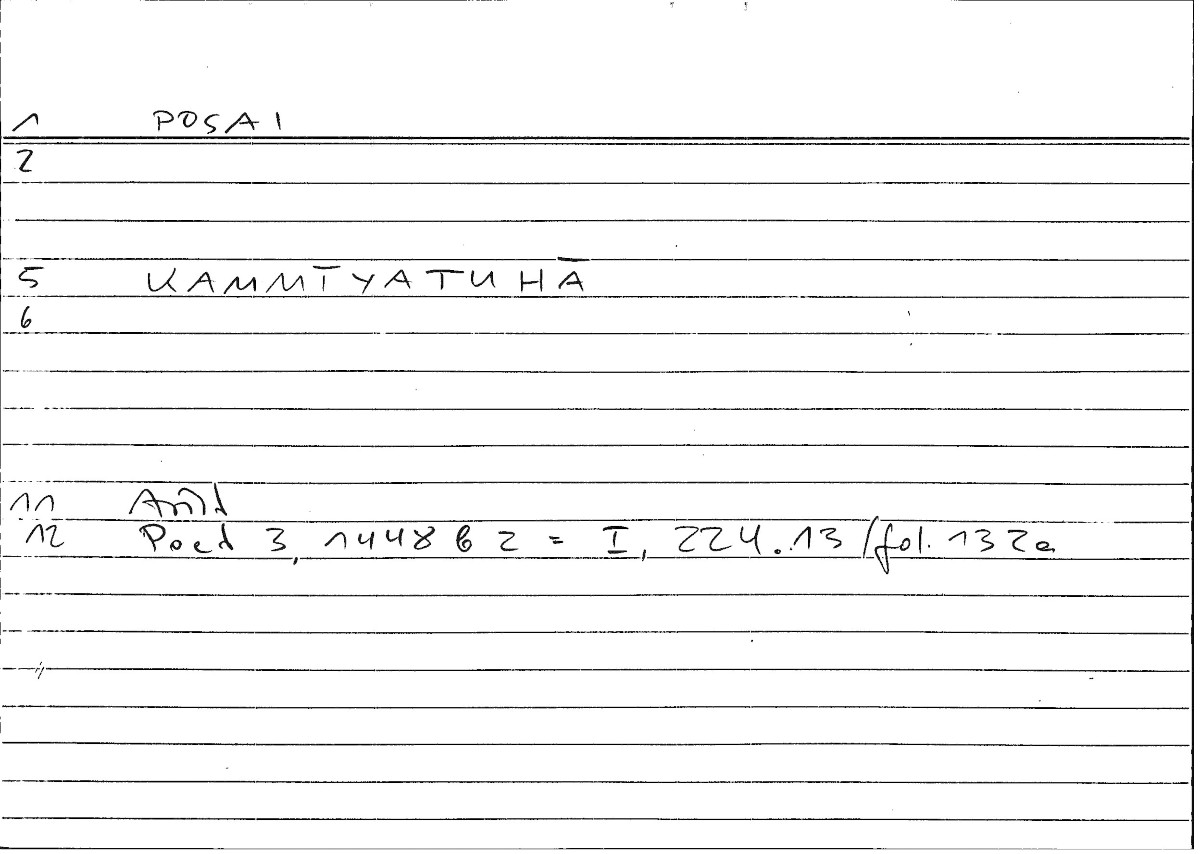 1 POSAI
2
5 KAMMĪYATUHĀ
6
11
12 Poed 3, 1448 b 2 = I, 224.13/fol. 132a